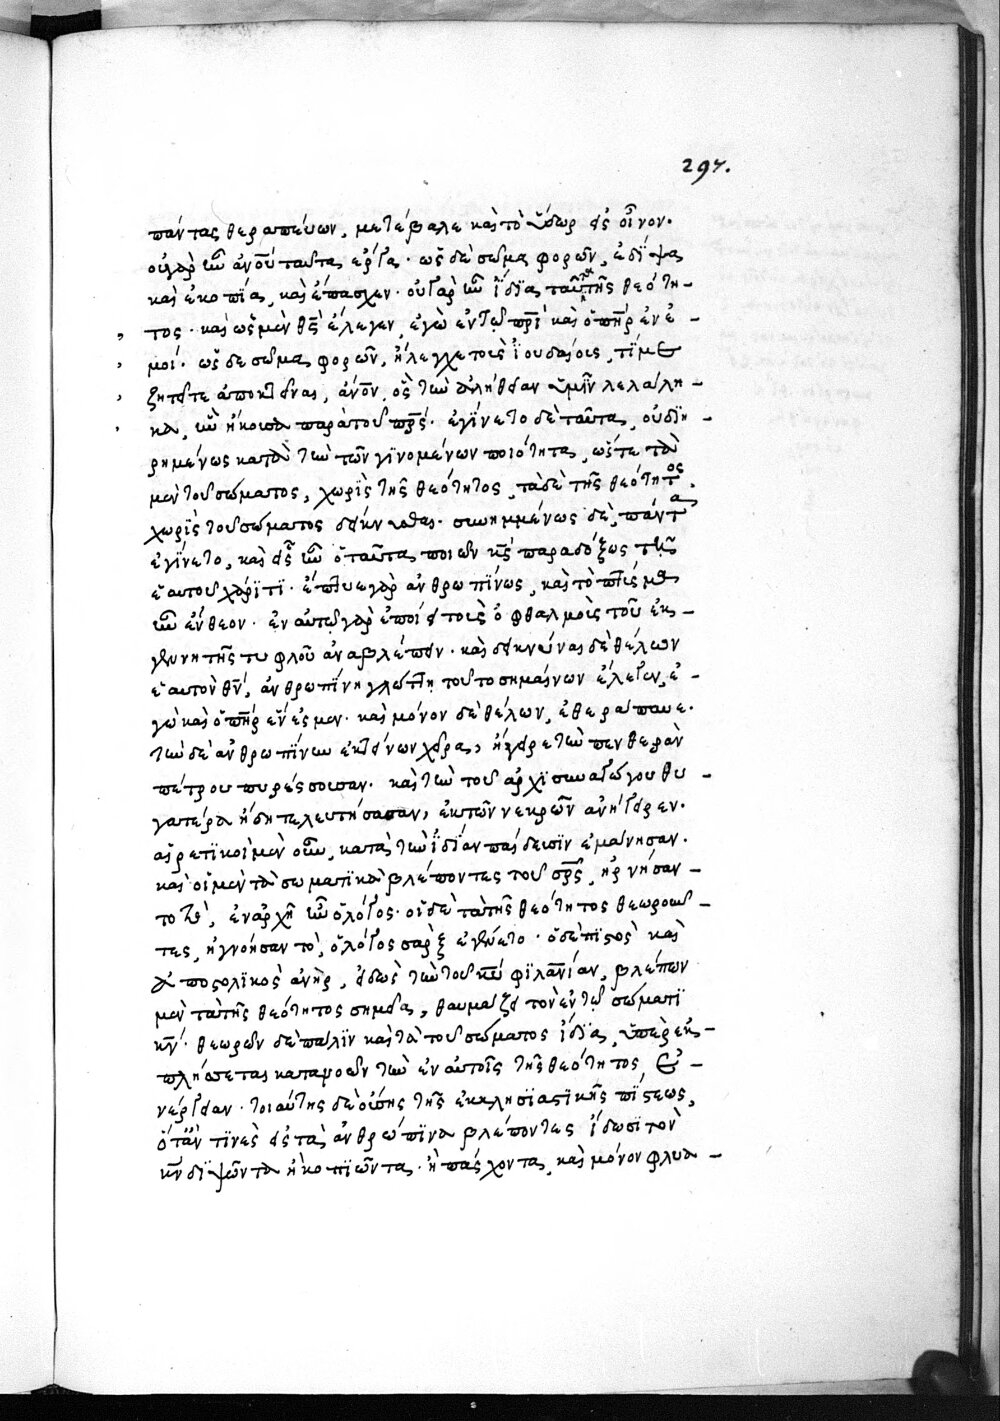 297.
πάντας θεραπεύων, μετέβαλε καὶ τὸ ὕδωρ εἰς οἶνον.
οὐ γὰρ ἦν ἀνοῦ ταῦτα ἔργα. ὡς δὲ σῶμα φορῶν, ἐδίψα
καὶ ἐκοπία, καὶ ἔπασχεν. οὐ γὰρ ἦν ἴδια ταῦτα τῆς θεότη-
τος. καὶ ὡς μὲν θς ἔλεγεν, ἐγὼ ἐν τῷ πρι καὶ ὁ πηρ ἐν ἐ-
μοί. ὡς δὲ σῶμα φορῶν, ἤλεγχε τοὺς ἰουδαίους, τί με
ζητεῖτε ἀποκτεῖναι, ἀνον, ὃς τὴν ἀλήθειαν ὑμῖν λελάλη-
κα, ἣν ἤκουσα παρὰ τοῦ πρς. ἐγίνετο δὲ ταῦτα, οὐ διῃ-
ρημένως κατὰ τὴν τῶν γινομένων ποιότητα, ὥστε τὰ
μὲν τοῦ σώματος, χωρὶς τῆς θεότητος, τὰ δὲ τῆς θεότητος,
χωρὶς τοῦ σώματος δείκνυσθαι. συνημμένως δὲ, πάντα
ἐγίνετο, καὶ εἷς ἦν ὁ ταῦτα ποιῶν κς παραδόξως τῇ
ἑαυτοῦ χάριτι. ἔπτυε γὰρ ἀνθρωπίνως, καὶ τὸ πτύσμα
ἦν ἔνθεον. ἐν αὐτῷ γὰρ ἐποίει τοὺς ὀφθαλμοὺς τοῦ ἐκ
γενητῆς τυφλοῦ ἀναβλέπειν. καὶ δεικνύναι δὲ θέλων
ἑαυτὸν θν, ἀνθρωπίνη γλώττῃ τοῦτο σημαίνων ἔλεγεν, ἐ-
γὼ καὶ ὁ πηρ ἕν ἐσμεν. καὶ μόνον δὲ θέλων, ἐθεράπευε.
τὴν δὲ ἀνθρωπίνην ἐκτείνων χεῖρα, ἤγειρε τὴν πενθερὰν
πέτρου πυρέσσουσαν. καὶ τὴν τοῦ ἀρχισυναγώγου θυ-
γατέρα ἤδη τελευτήσασαν, ἐκ τῶν νεκρῶν ἀνήγειρεν.
αἱρετικοὶ μὲν οὖν, κατὰ τὴν ἰδίαν παίδευσιν ἐμάνησαν.
καὶ οἱ μὲν τὰ σωματικὰ βλέποντες τοῦ σρς, ἠρνήσαν-
το τὸ, ἐν ἀρχῆ ἦν ὁ λόγος. οἱ δὲ τὰ τῆς θεότητος θεωροῦν-
τες, ἠγνόησαν τὸ, ὁ λόγος σὰρξ ἐγένετο. ὁ δὲ πιστὸς καὶ
ἀποστολικὸς ἀνὴρ, εἰδὼς τὴν τοῦ κυ φιλανίαν, βλέπων
μὲν τὰ τῆς θεότητος σημεῖα, θαυμάζει τὸν ἐν τῷ σώματι
κν. θεωρῶν δὲ πάλιν καὶ τὰ τοῦ σώματος ἴδια, ὑπερεκ-
πλήσσεται κατανοῶν τὴν ἐν αὐτοῖς τῆς θεότητος, ἐ-
νέργειαν. τοιαύτης δὲ οὔσης τῆς ἐκκλησιαστικῆς πίστεως,
ὅταν τινὲς εἰς τὰ ἀνθρώπινα βλέποντες ἴδωσι τὸν
κν διψῶντα ἢ κοπιῶντα. ἢ πάσχοντα, καὶ μόνον φλυα-